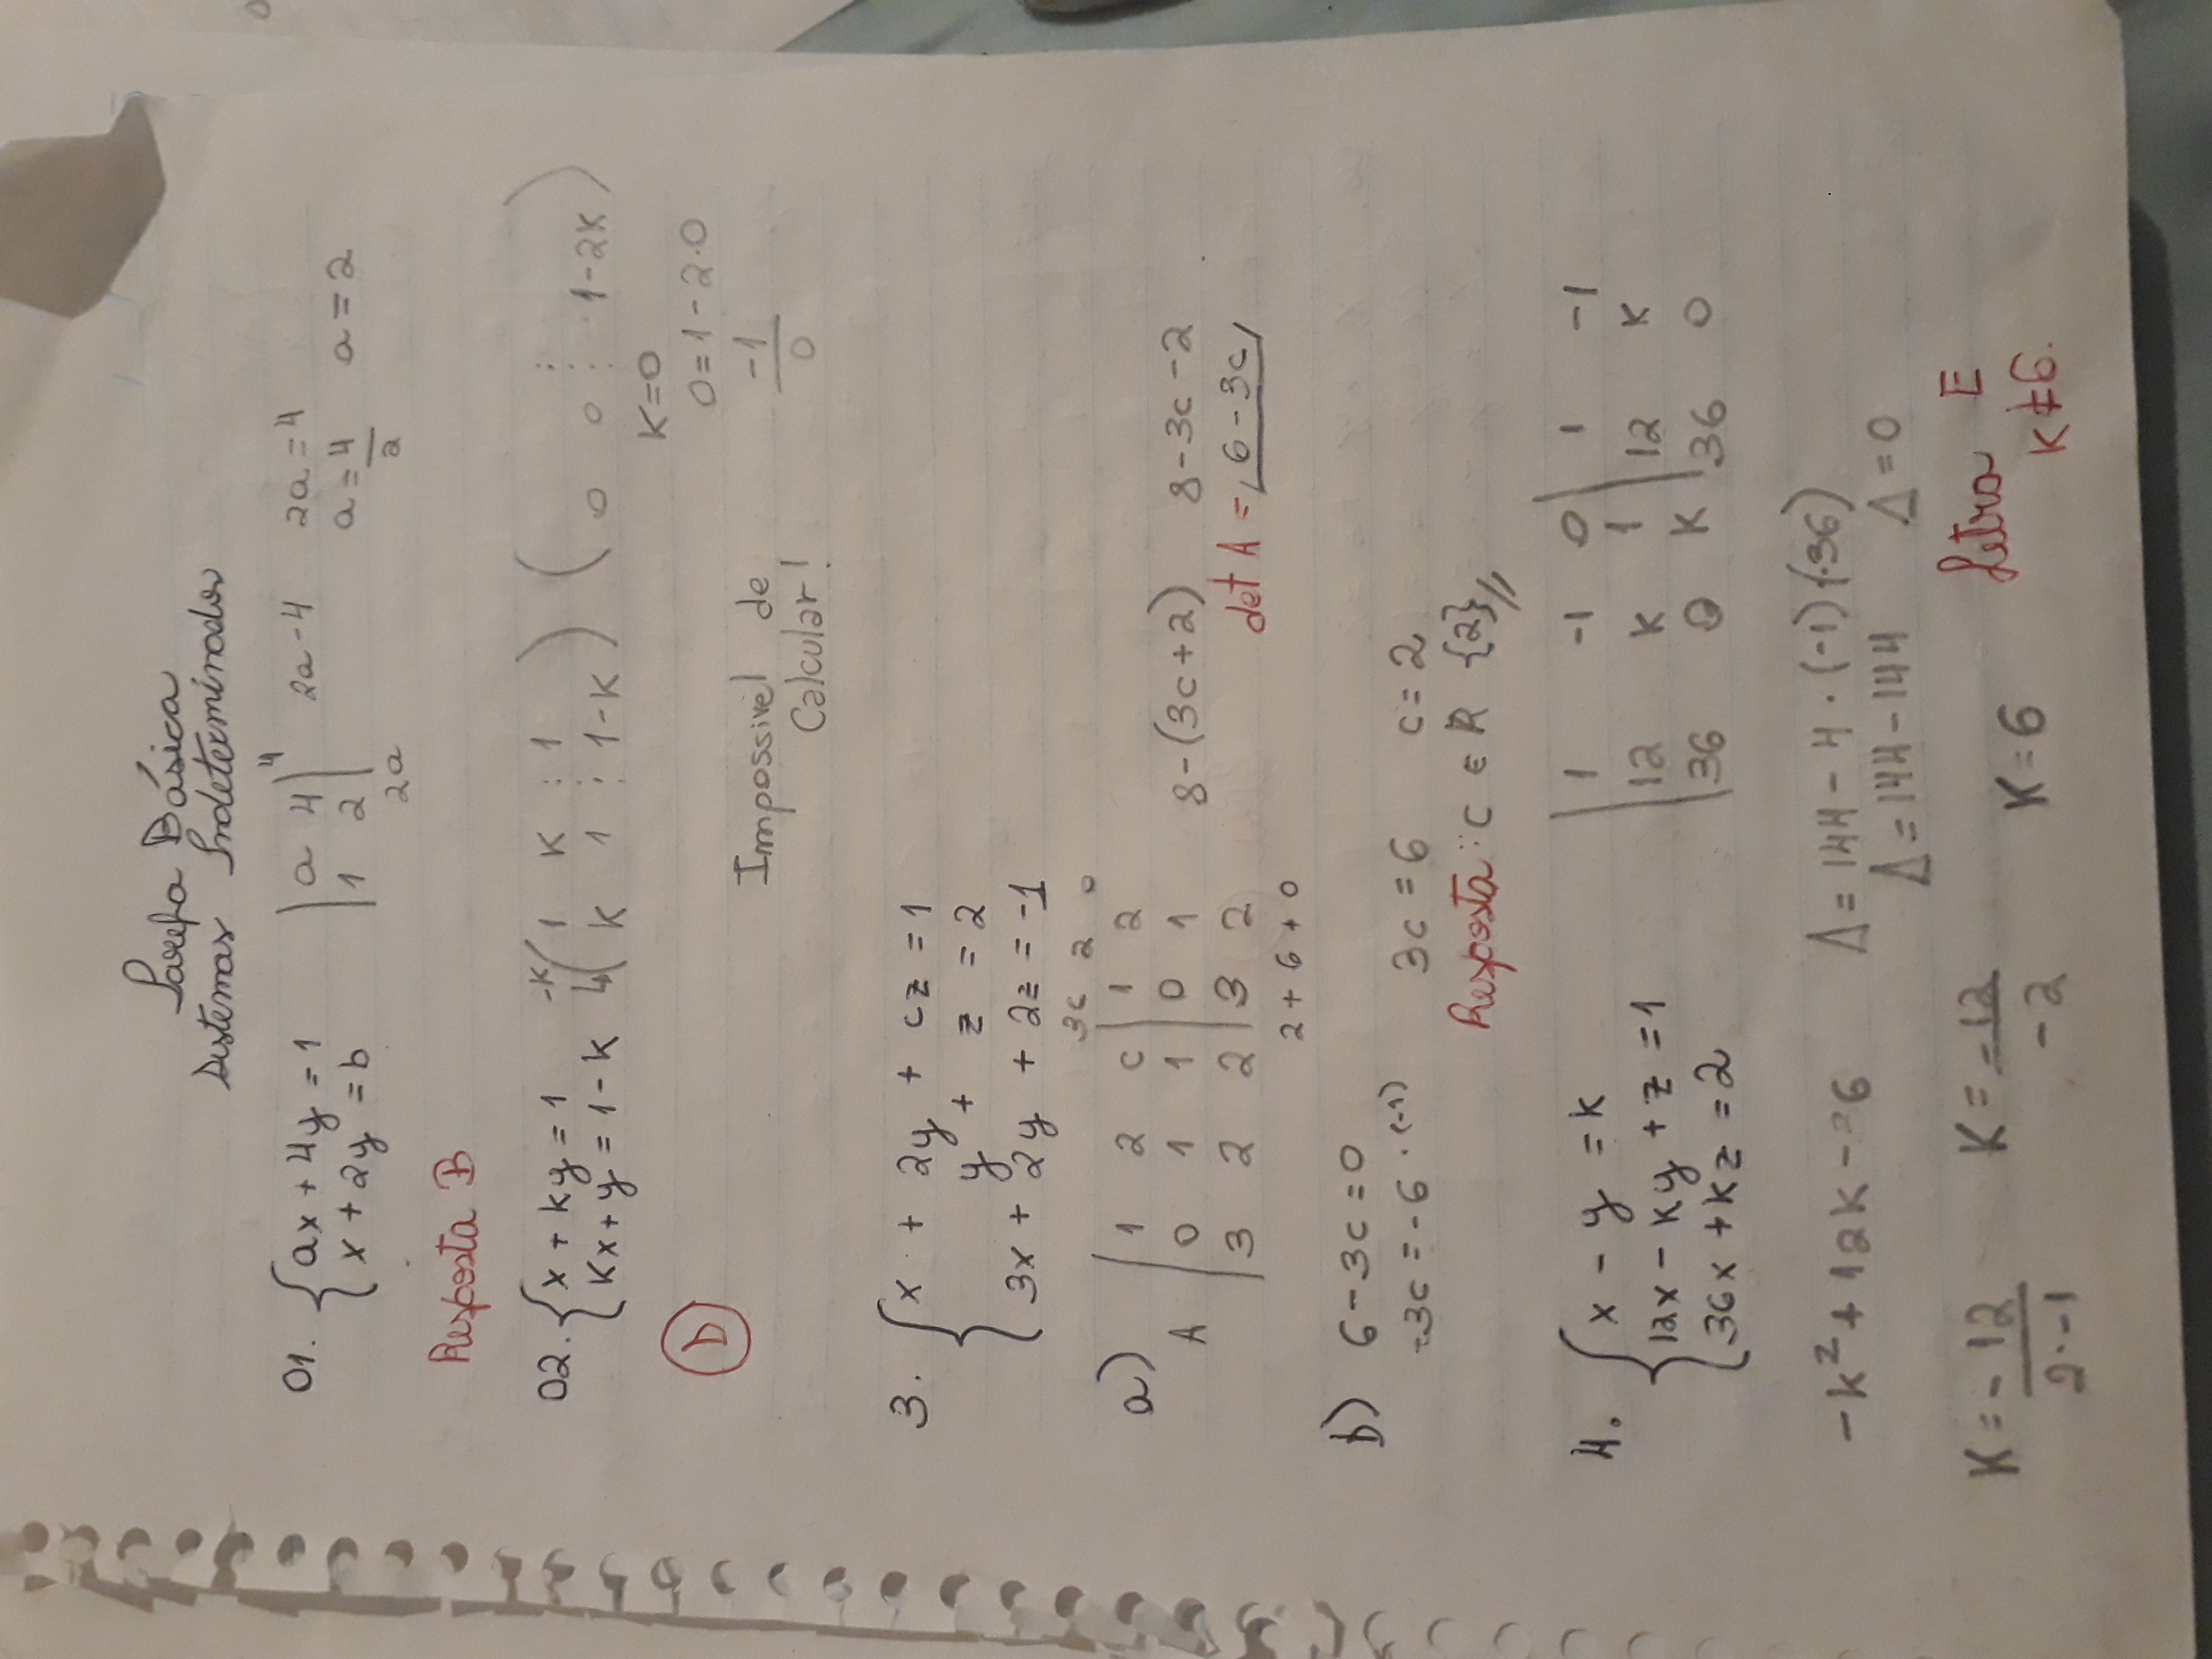 Tarefa Básica
Sistemas Indeterminados
01. { ax + 4y = 1
x + 2y = b
| a 4 | 4
| 1 2 |
2a
2a - 4
2a = 4
a = 4/2 a = 2
Resposta B
02. { x + ky = 1
Kx + y = 1 - k
-K ( 1 K : 1 )
( K 1 : 1-K )
( 0 0 : 1-2K )
K = 0
0 = 1 - 2.0
-1/0
Impossivel de
Calcular!
D
3. { x + 2y + cz = 1
y + z = 2
3x + 2y + 2z = -1
a)
3c 2 0
A | 1 2 c | 1 2
0 1 1 | 0 1
3 2 2 | 3 2
2 + 6 + 0
8-(3c+2) 8-3c-2
det A = 6-3c
b) 6-3c=0
-3c = -6 . (-1) 3c = 6 c = 2
Resposta: c ∈ R {2}//
4. { x - y = k
12x - ky + z = 1
36x + kz = 2
| 1 -1 0 | 1 -1
12 K 1 | 12 K
36 0 K | 36 0
-k² + 12k - 36 Δ = 144 - 4 . (-1) (-36)
Δ = 144 - 144 Δ = 0
K = -12/2.-1 K = -12/-2 K = 6
Letra E
K ≠ 6.